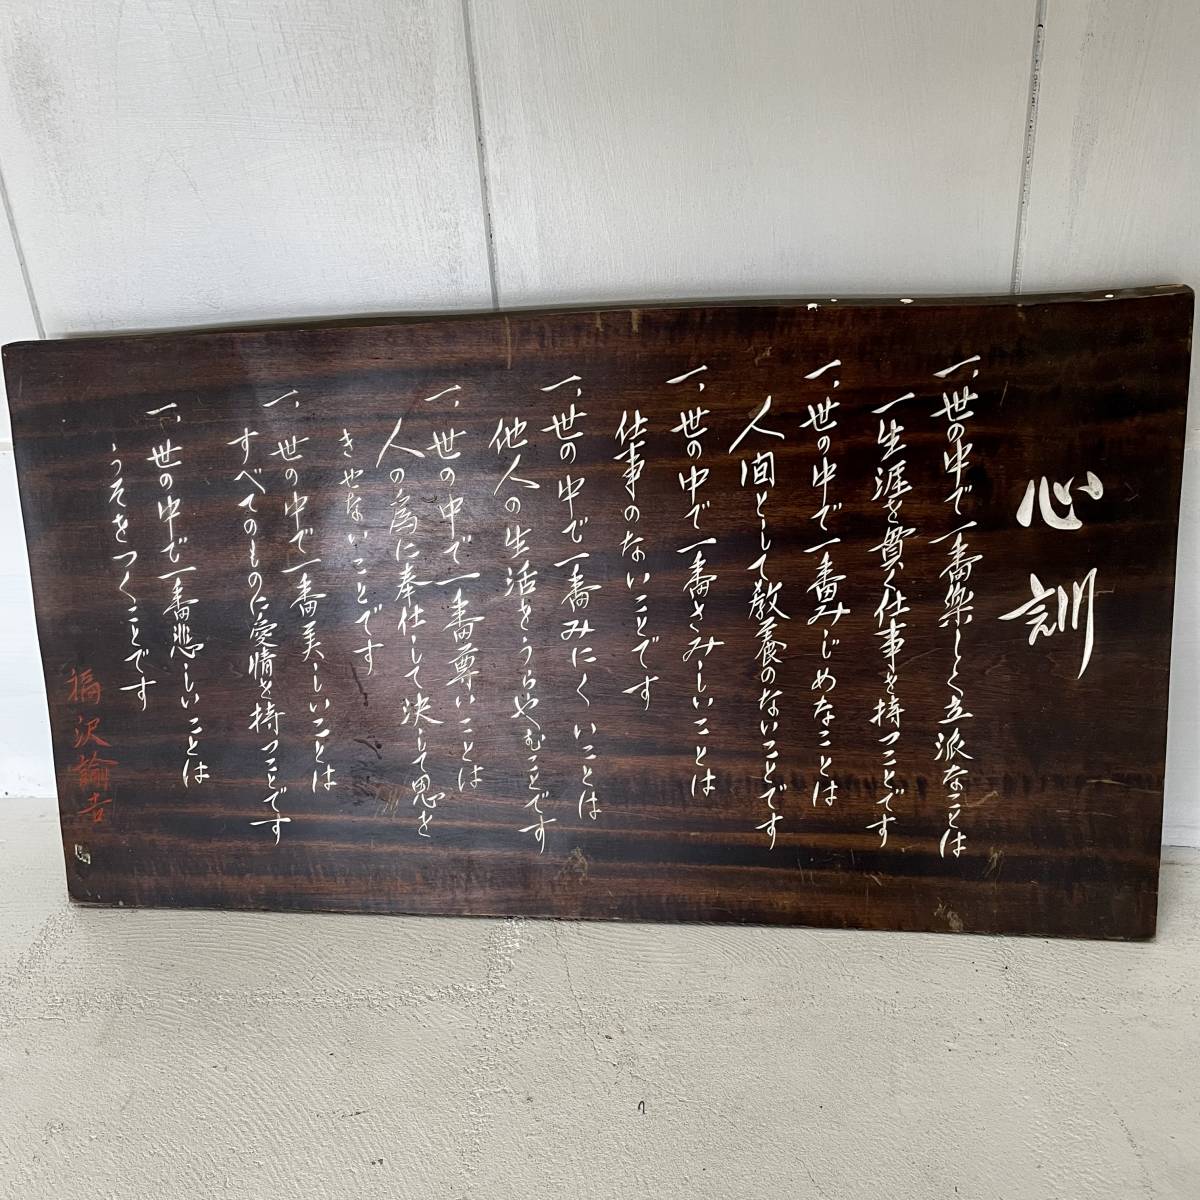 心訓
一、世の中で一番楽しく立派なことは
一生涯を貫く仕事を持つことです
一、世の中で一番みじめなことは
人間として教養のないことです
一、世の中で一番さみしいことは
仕事のないことです
一、世の中で一番みにくいことは
他人の生活をうらやむことです
一、世の中で一番尊いことは
人の為に奉仕して決して恩を
きせないことです
一、世の中で一番美しいことは
すべてのものに愛情を持つことです
一、世の中で一番悲しいことは
うそをつくことです
福沢諭吉